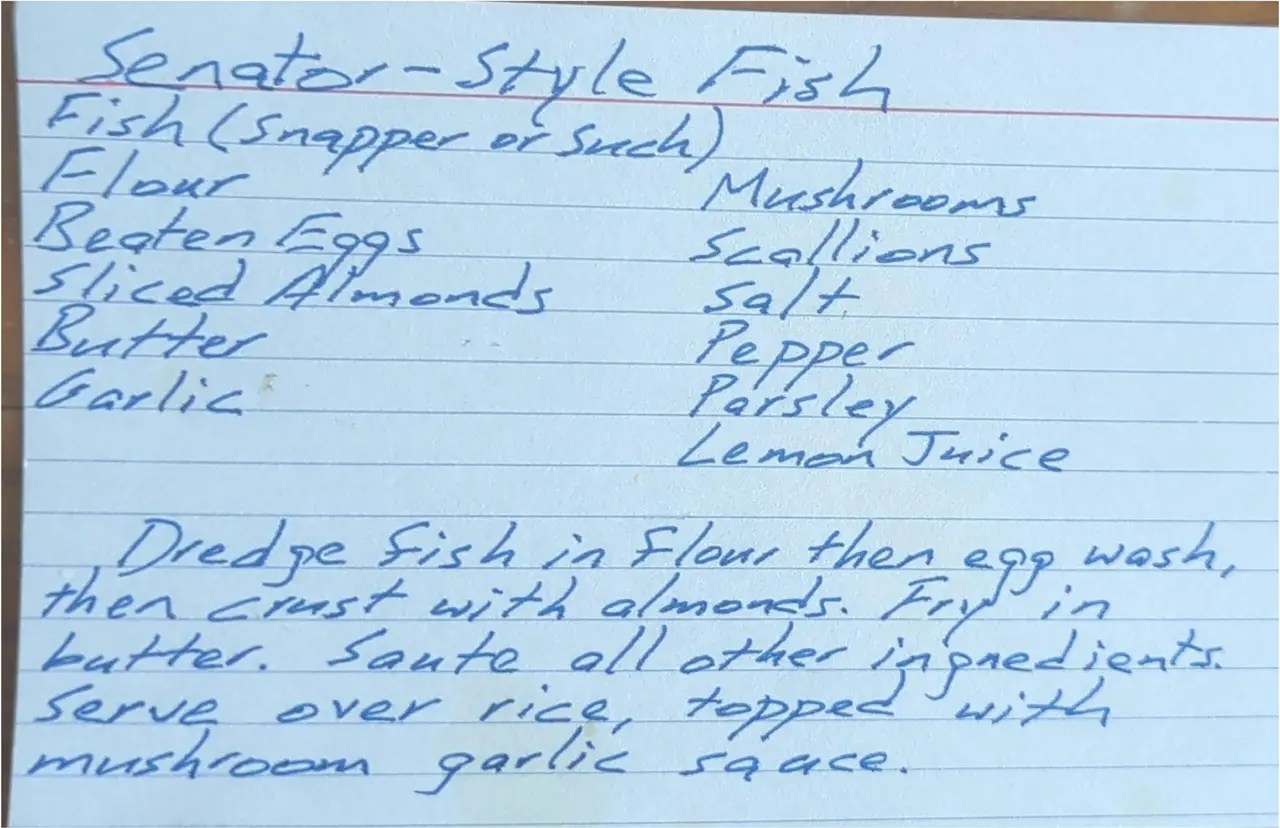 Senator-Style Fish
Fish (Snapper or Such)
Flour
Beaten Eggs
Sliced Almonds
Butter
Garlic
Mushrooms
Scallions
Salt
Pepper
Parsley
Lemon Juice
Dredge fish in flour then egg wash,
then crust with almonds. Fry in
butter. Saute all other ingredients.
Serve over rice, topped with
mushroom garlic sauce.